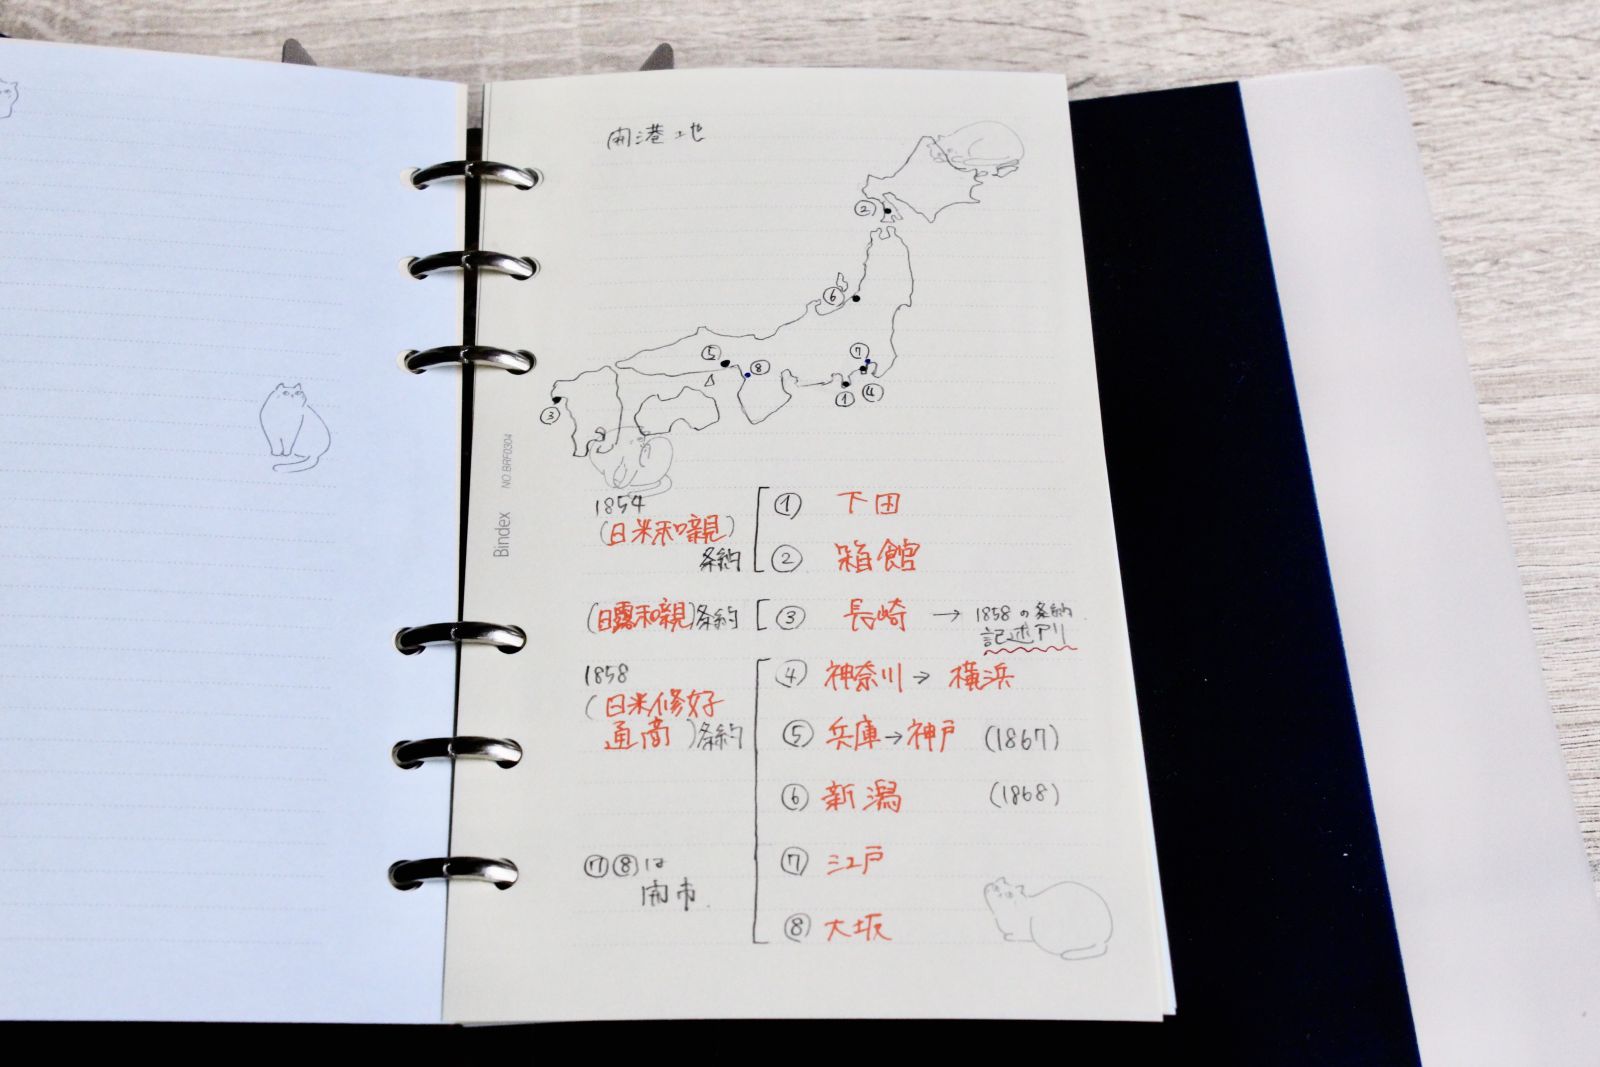 開港地
②
⑥
⑤
⑧
⑦
③
①
④
1854
(日米和親)
条約
① 下田
② 箱館
(日露和親)条約
③ 長崎 → 1858の条約
記述アリ
1858
(日米修好
通商)条約
④ 神奈川→横浜
⑤ 兵庫→神戸 (1867)
⑥ 新潟 (1868)
⑦ 江戸
⑦⑧は
開市
⑧ 大坂
Bindex NO.BRF0304